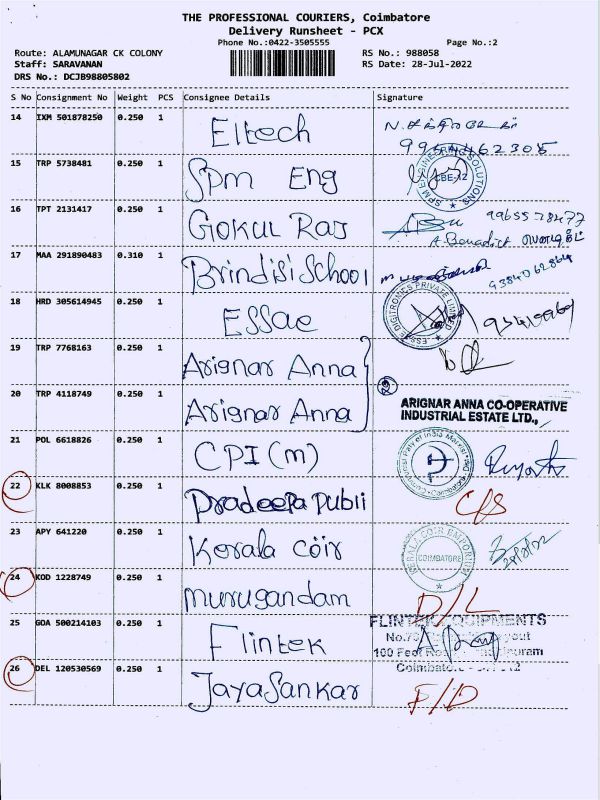 THE PROFESSIONAL COURIERS, Coimbatore
Delivery Runsheet - PCX
Phone No.:0422-3505555
Page No.:2
Route: ALAMUNAGAR CK COLONY
RS No.: 988058
Staff: SARAVANAN
RS Date: 28-Jul-2022
DRS No.: DCJB98805802
S No Consignment No Weight PCS Consignee Details Signature
14 IXM 501878250 0.250 1 Eltech
15 TRP 5738481 0.250 1 SPM Eng
SPM ENGINEERING SOLUTIONS
CBE-12
16 TPT 2131417 0.250 1 GOKUL Raj
9965578477
A. Benadict
17 MAA 291890483 0.310 1 Brindisi School
9384062864
18 HRD 305614945 0.250 1 ESSae
ESSAE DIGITRONICS PRIVATE LIMITED
19 TRP 7768163 0.250 1 Arignar Anna
20 TRP 4118749 0.250 1 Arignar Anna
2
ARIGNAR ANNA CO-OPERATIVE
INDUSTRIAL ESTATE LTD.,
21 POL 6618826 0.250 1 CPI (m)
22 KLK 8008853 0.250 1 Pradeepa Publi
23 APY 641220 0.250 1 Kerala Coir
KERALA COIR EMPORIUM
COIMBATORE
24 KOD 1228749 0.250 1 Murugandam
D/L
25 GOA 500214103 0.250 1 Flintek
FLINTEK EQUIPMENTS
100 Feet
26 DEL 120530569 0.250 1 JayaSankar